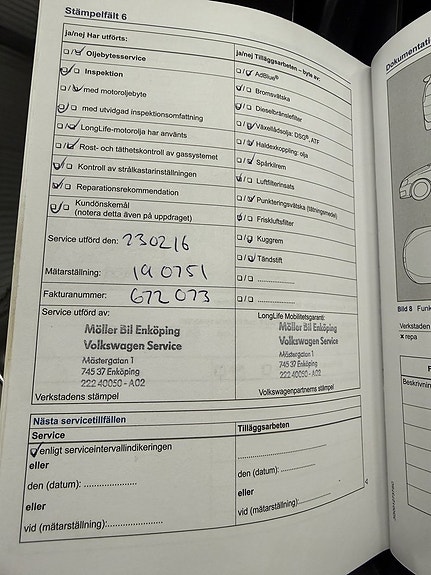 Stämpelfält 6
Dokumentati
ja/nej Har utförts:
Oljebytesservice
Inspektion
med motoroljebyte
med utvidgad inspektionsomfattning
LongLife-motorolja har använts
Rost- och täthetskontroll av gassystemet
Kontroll av strålkastarinställningen
Reparationsrekommendation
Kundönskemål
(notera detta även på uppdraget)
ja/nej Tilläggsarbeten – byte av:
AdBlue®
Bromsvätska
Dieselbränslefilter
Växellådsolja: DSG®, ATF
Haldexkoppling: olja
Spärklirem
Luftfilterinsats
Punkteringsvätska (tätningsmedel)
Friskluftsfilter
Kuggrem
Tändstift
Service utförd den: 230216
Mätarställning: 190751
Fakturanummer: 672 073
Service utförd av:
Möller Bil Enköping
Volkswagen Service
Mästergatan 1
745 37 Enköping
222 40050 - A02
Verkstadens stämpel
LongLife Mobilitetsgaranti:
Möller Bil Enköping
Volkswagen Service
Mästergatan 1
745 37 Enköping
222 40050 - A02
Volkswagenpartnerns stämpel
Nästa servicetillfällen
Service
enligt serviceintervallindikeringen
eller
den (datum):
eller
vid (mätarställning):
Tilläggsarbeten
den (datum):
eller
vid (mätarställning):
Bild 8 Funk
Verkstaden
× repa
Beskrivning